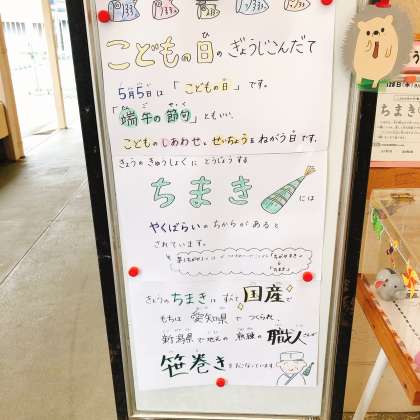 こどもの日のぎょうじこんだて
5月5日は「こどもの日」です。
「端午の節句」ともいい、
こどものしあわせとせいちょうをねがう日です。
きょうのきゅうしょくにとうじょうする
ちまき
には
やくばらいのちからがあると
されています。
きょうのちまきはすべて国産で
もちは愛知県でつくられ、
新潟県で地元の熟練の職人さんが
笹巻きをおこなっています!
ちまき